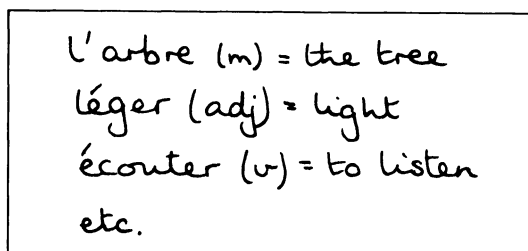 l'arbre (m) = the tree
léger (adj) = light
écouter (v) = to listen
etc.